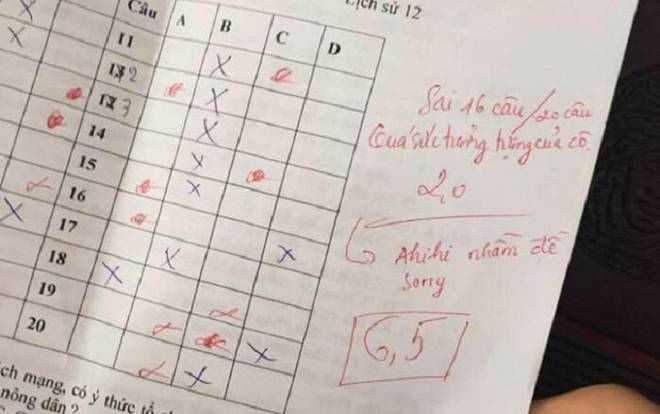 Lịch sử 12
Câu A B C D
11
12
13
14
15
16
17
18
19
20
Sai 16 câu/20 câu
Quá sức tưởng tượng của cô.
2,0
Ahihi nhầm đề
Sorry
6,5
ch mạng, có ý thức tổ
nông dân ?